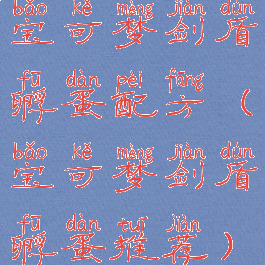 bǎo kě mèng jiàn dùn
宝可梦剑盾
fū dàn pèi fāng
孵蛋配方（
bǎo kě mèng jiàn dùn
宝可梦剑盾
fū dàn tuī jiàn
孵蛋推荐）